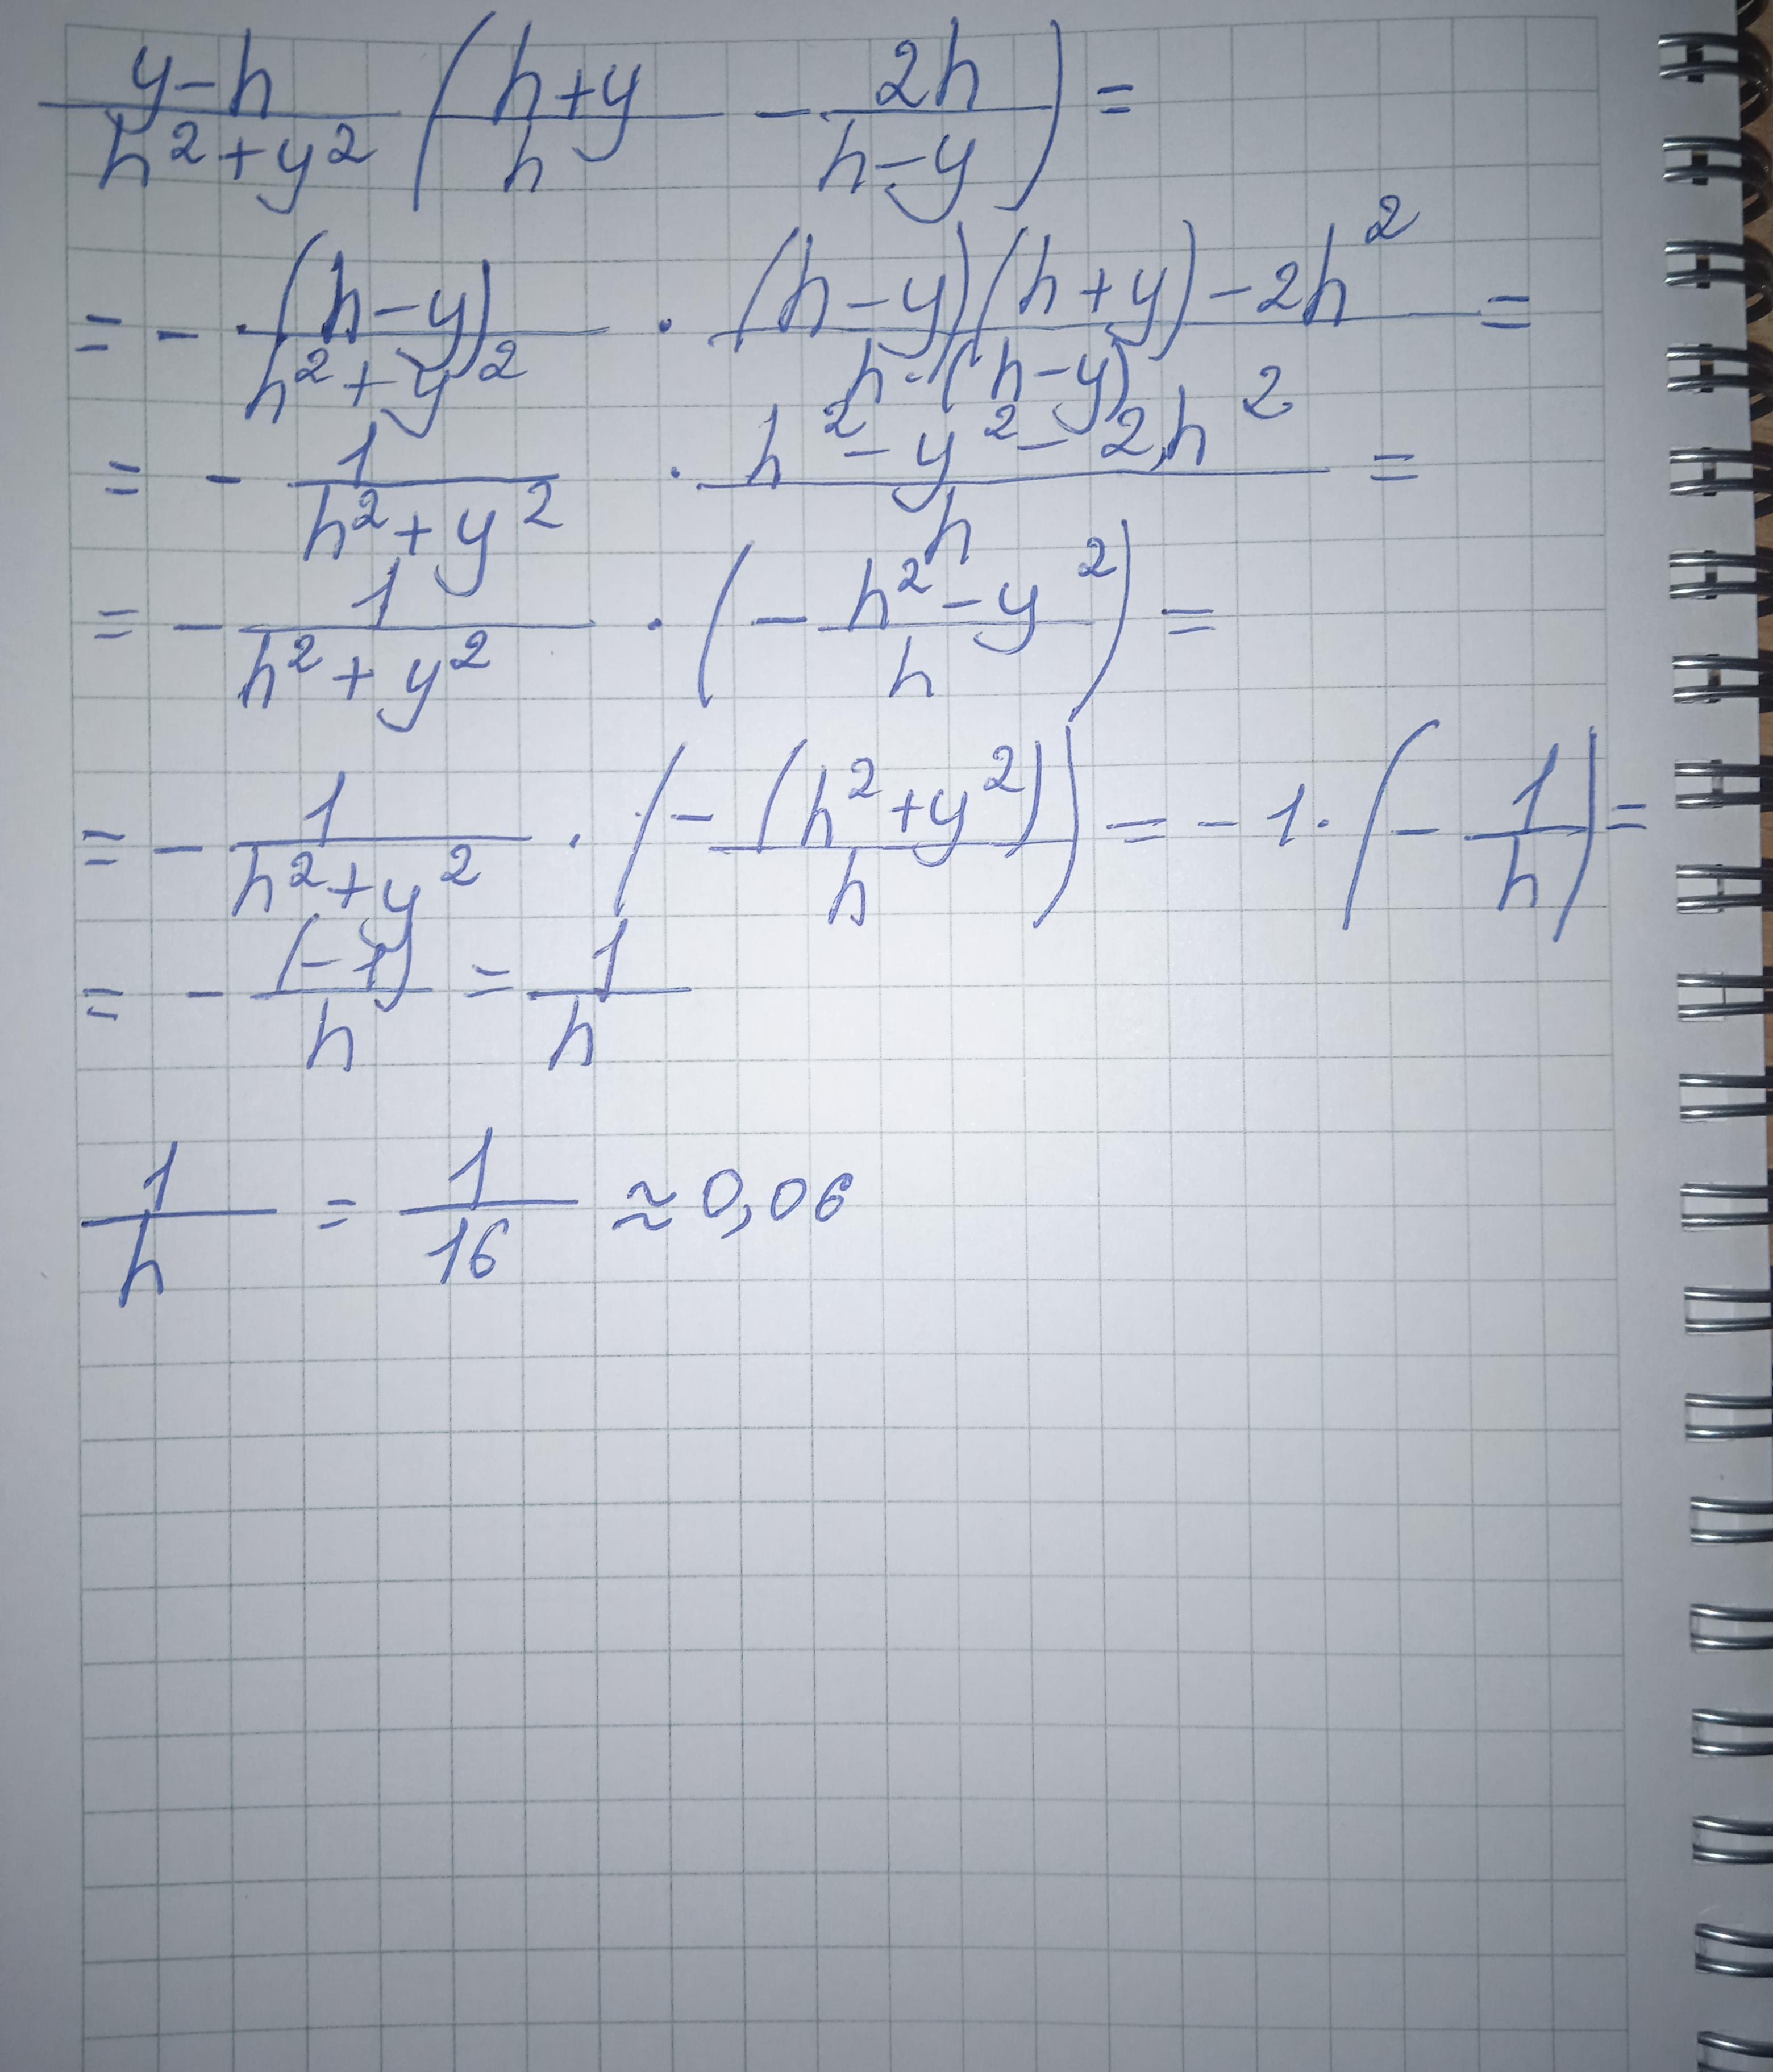 \frac{y-h}{h^2+y^2} \left( \frac{h+y}{h} - \frac{2h}{h-y} \right) =
= - \frac{(h-y)}{h^2+y^2} \cdot \frac{(h-y)(h+y)-2h^2}{h \cdot (h-y)} =
= - \frac{1}{h^2+y^2} \cdot \frac{h^2-y^2-2h^2}{h} =
= - \frac{1}{h^2+y^2} \cdot \left( - \frac{h^2-y^2}{h} \right) =
= - \frac{1}{h^2+y^2} \cdot \left( - \frac{(h^2+y^2)}{h} \right) = -1 \cdot \left( - \frac{1}{h} \right) =
= - \frac{(-1)}{h} = \frac{1}{h}
\frac{1}{h} = \frac{1}{16} ≈ 0,06